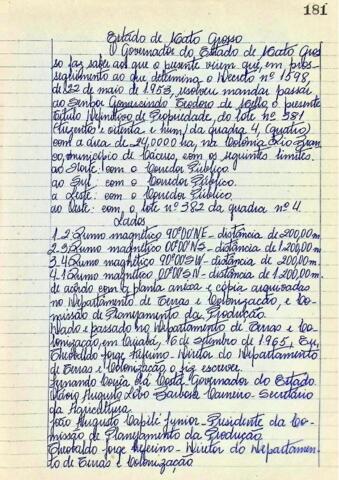 181
Estado de Mato Grosso
O Governador do Estado de Mato Gros
so faz saber aos que o presente virem que, em pros
seguimento ao que determina o Decreto nº 1598,
de 22 de maio de 1953, resolveu mandar passar
ao Senhor Teodoro de Mello o presente
Título Definitivo de Propriedade, do lote nº 381
(Trezentos e oitenta e hum) da quadra 4, (quatro)
com a área de 24,0000 ha, na Colônia Rio Bran
co, município de Cáceres, com os seguintes limites.
ao Norte: com o Corredor Público
ao Sul: com o Corredor Público.
a Leste: com o Corredor Público.
ao Oeste: com, o lote nº 382 da quadra nº 4.
Lados
1.2 Rumo magnético 90º00'NE - distância de 200,00m.
2.3 Rumo magnético 00º00'NS - distância de 1.200,00m.
3.4 Rumo magnético 90º00'SW - distância de 200,00m.
4.1 Rumo magnético 00º00'SN - distância de 1.200,00m.
de acordo com a planta anexa e cópia arquivadas
no Departamento de Terras e Colonização, e Co-
missão de Planejamento da Produção.
Dado e passado no Departamento de Terras e Co-
lonização, em Cuiabá, 16 de setembro de 1965, Eu,
Theobaldo Jorge - Diretor do Departamento
de Terras e Colonização o fiz escrever.
Fernando Corrêa da Costa Governador do Estado.
Augusto Lobo Barbosa Carneiro - Secretário
da Agricultura
João Augusto Capilé Junior - Presidente da Co-
missão de Planejamento da Produção
Theobaldo Jorge - Diretor do Departamen-
to de Terras e Colonização